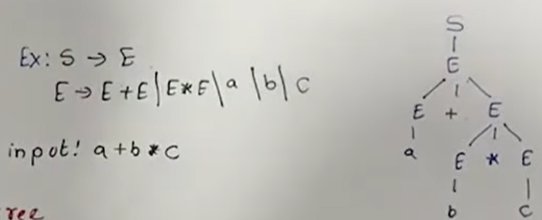 Ex: S → E
E → E+E|E*E|a|b|c
input! a+b*c
S
E
E + E
a E * E
b c
ree